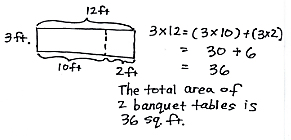 12ft
3ft.
10ft
2ft
3×12=(3×10)+(3×2)
= 30 + 6
= 36
The total area of
2 banquet tables is
36 sq ft.